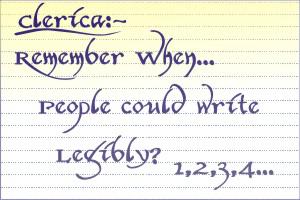 Clerica:~
Remember When...
People could write
Legibly?
1,2,3,4...